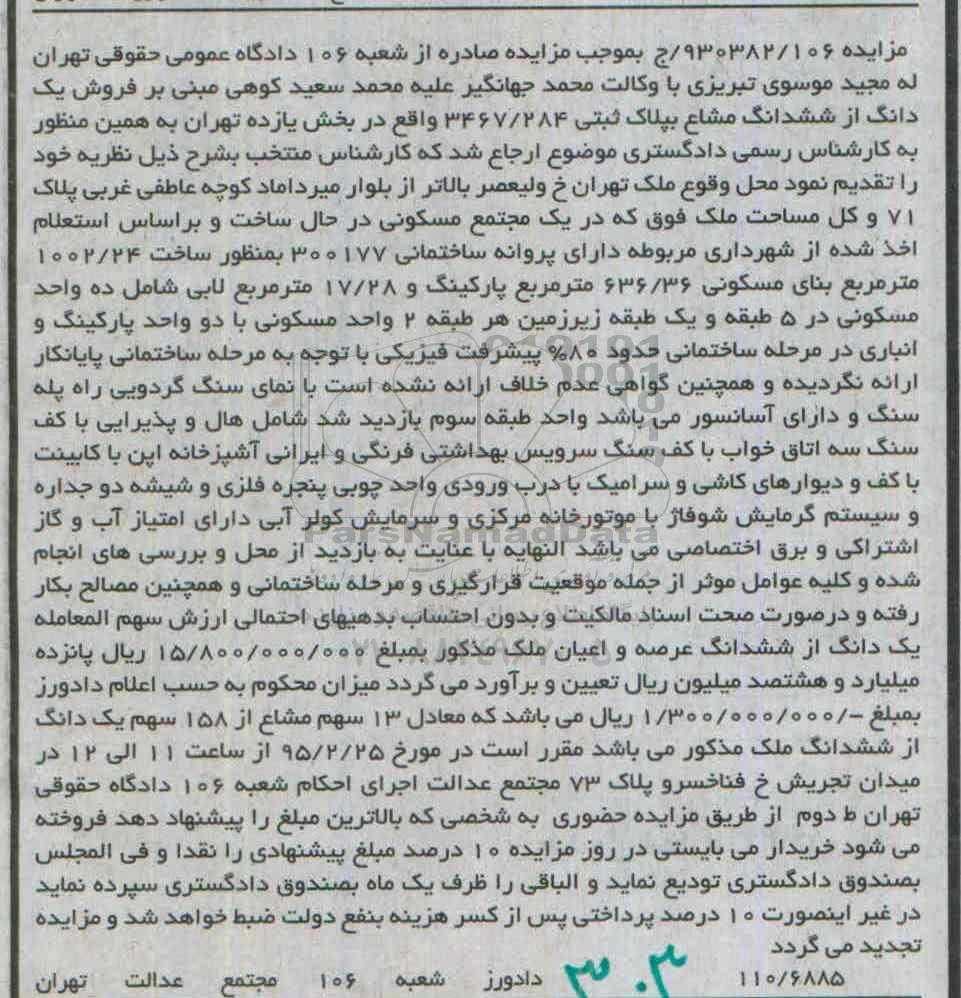 مزایده ۹۳۰۳۸۲/۱۰۶/ج بموجب مزایده صادره از شعبه ۱۰۶ دادگاه عمومی حقوقی تهران
له مجید موسوی تبریزی با وکالت محمد جهانگیر علیه محمد سعید کوهی مبنی بر فروش یک
دانگ از ششدانگ مشاع بپلاک ثبتی ۳۴۶۷/۲۸۴ واقع در بخش یازده تهران به همین منظور
به کارشناس رسمی دادگستری موضوع ارجاع شد که کارشناس منتخب بشرح ذیل نظریه خود
را تقدیم نمود محل وقوع ملک تهران خ ولیعصر بالاتر از بلوار میرداماد کوچه عاطفی غربی پلاک
۷۱ و کل مساحت ملک فوق که در یک مجتمع مسکونی در حال ساخت و براساس استعلام
اخذ شده از شهرداری مربوطه دارای پروانه ساختمانی ۳۰۰۱۷۷ بمنظور ساخت ۱۰۰۲/۲۴
مترمربع بنای مسکونی ۶۳۶/۳۶ مترمربع پارکینگ و ۱۷/۲۸ مترمربع لابی شامل ده واحد
مسکونی در ۵ طبقه و یک طبقه زیرزمین هر طبقه ۲ واحد مسکونی با دو واحد پارکینگ و
انباری در مرحله ساختمانی حدود ۸۰% پیشرفت فیزیکی با توجه به مرحله ساختمانی پایانکار
ارائه نگردیده و همچنین گواهی عدم خلاف ارائه نشده است با نمای سنگ گردویی راه پله
سنگ و دارای آسانسور می باشد واحد طبقه سوم بازدید شد شامل هال و پذیرایی با کف
سنگ سه اتاق خواب با کف سنگ سرویس بهداشتی فرنگی و ایرانی آشپزخانه اپن با کابینت
با کف و دیوارهای کاشی و سرامیک با درب ورودی واحد چوبی پنجره فلزی و شیشه دو جداره
و سیستم گرمایش شوفاژ با موتورخانه مرکزی و سرمایش کولر آبی دارای امتیاز آب و گاز
اشتراکی و برق اختصاصی می باشد النهایه با عنایت به بازدید از محل و بررسی های انجام
شده و کلیه عوامل موثر از جمله موقعیت قرارگیری و مرحله ساختمانی و همچنین مصالح بکار
رفته و درصورت صحت اسناد مالکیت و بدون احتساب بدهیهای احتمالی ارزش سهم المعامله
یک دانگ از ششدانگ عرصه و اعیان ملک مذکور بمبلغ ۱۵/۸۰۰/۰۰۰/۰۰۰ ریال پانزده
میلیارد و هشتصد میلیون ریال تعیین و برآورد می گردد میزان محکوم به حسب اعلام دادورز
بمبلغ -/۱/۳۰۰/۰۰۰/۰۰۰ ریال می باشد که معادل ۱۳ سهم مشاع از ۱۵۸ سهم یک دانگ
از ششدانگ ملک مذکور می باشد مقرر است در مورخ ۹۵/۲/۲۵ از ساعت ۱۱ الی ۱۲ در
میدان تجریش خ فناخسرو پلاک ۷۳ مجتمع عدالت اجرای احکام شعبه ۱۰۶ دادگاه حقوقی
تهران ط دوم از طریق مزایده حضوری به شخصی که بالاترین مبلغ را پیشنهاد دهد فروخته
می شود خریدار می بایستی در روز مزایده ۱۰ درصد مبلغ پیشنهادی را نقدا و فی المجلس
بصندوق دادگستری تودیع نماید و الباقی را ظرف یک ماه بصندوق دادگستری سپرده نماید
در غیر اینصورت ۱۰ درصد پرداختی پس از کسر هزینه بنفع دولت ضبط خواهد شد و مزایده
تجدید می گردد
۱۱۰/۶۸۸۵ دادورز شعبه ۱۰۶ مجتمع عدالت تهران
۳۰۳
ParsNamadData